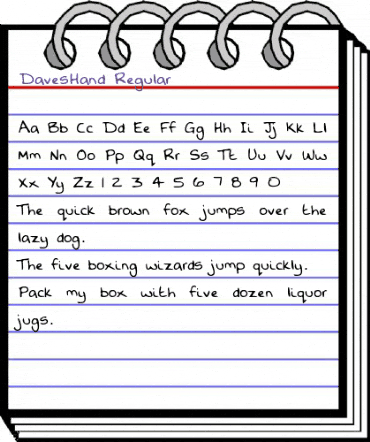 DavesHand Regular
Aa Bb Cc Dd Ee Ff Gg Hh Ii Jj Kk Ll
Mm Nn Oo Pp Qq Rr Ss Tt Uu Vv Ww
Xx Yy Zz 1 2 3 4 5 6 7 8 9 0
The quick brown fox jumps over the
lazy dog.
The five boxing wizards jump quickly.
Pack my box with five dozen liquor
jugs.